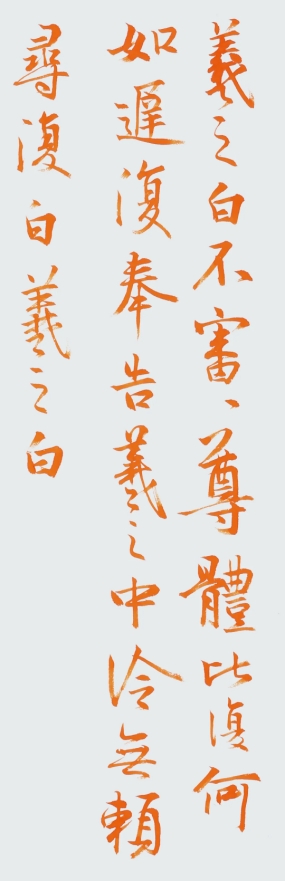 羲之白不審、尊體比復何
如遲復奉告羲之中冷無賴
尋復白羲之白